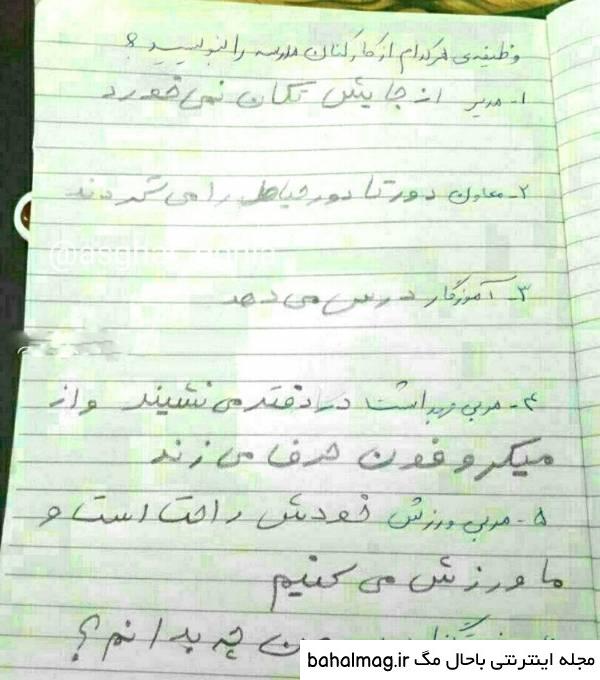 وظیفه‌ی هرکدام از کارکنان مدرسه را بنویسید ؟
۱- مدیر از جایش تکان نمی خورد
۲- معاون دورتا دور حیاط را می گردند
۳- آموزگار درس می دهد
۴- مربی بهداشت در دفتر می نشیند و از
میکروفون حرف می زند
۵- مربی ورزش خودش راحت است و
ما ورزش می کنیم
چه بدانم ؟
مجله اینترنتی باحال مگ bahalmag.ir